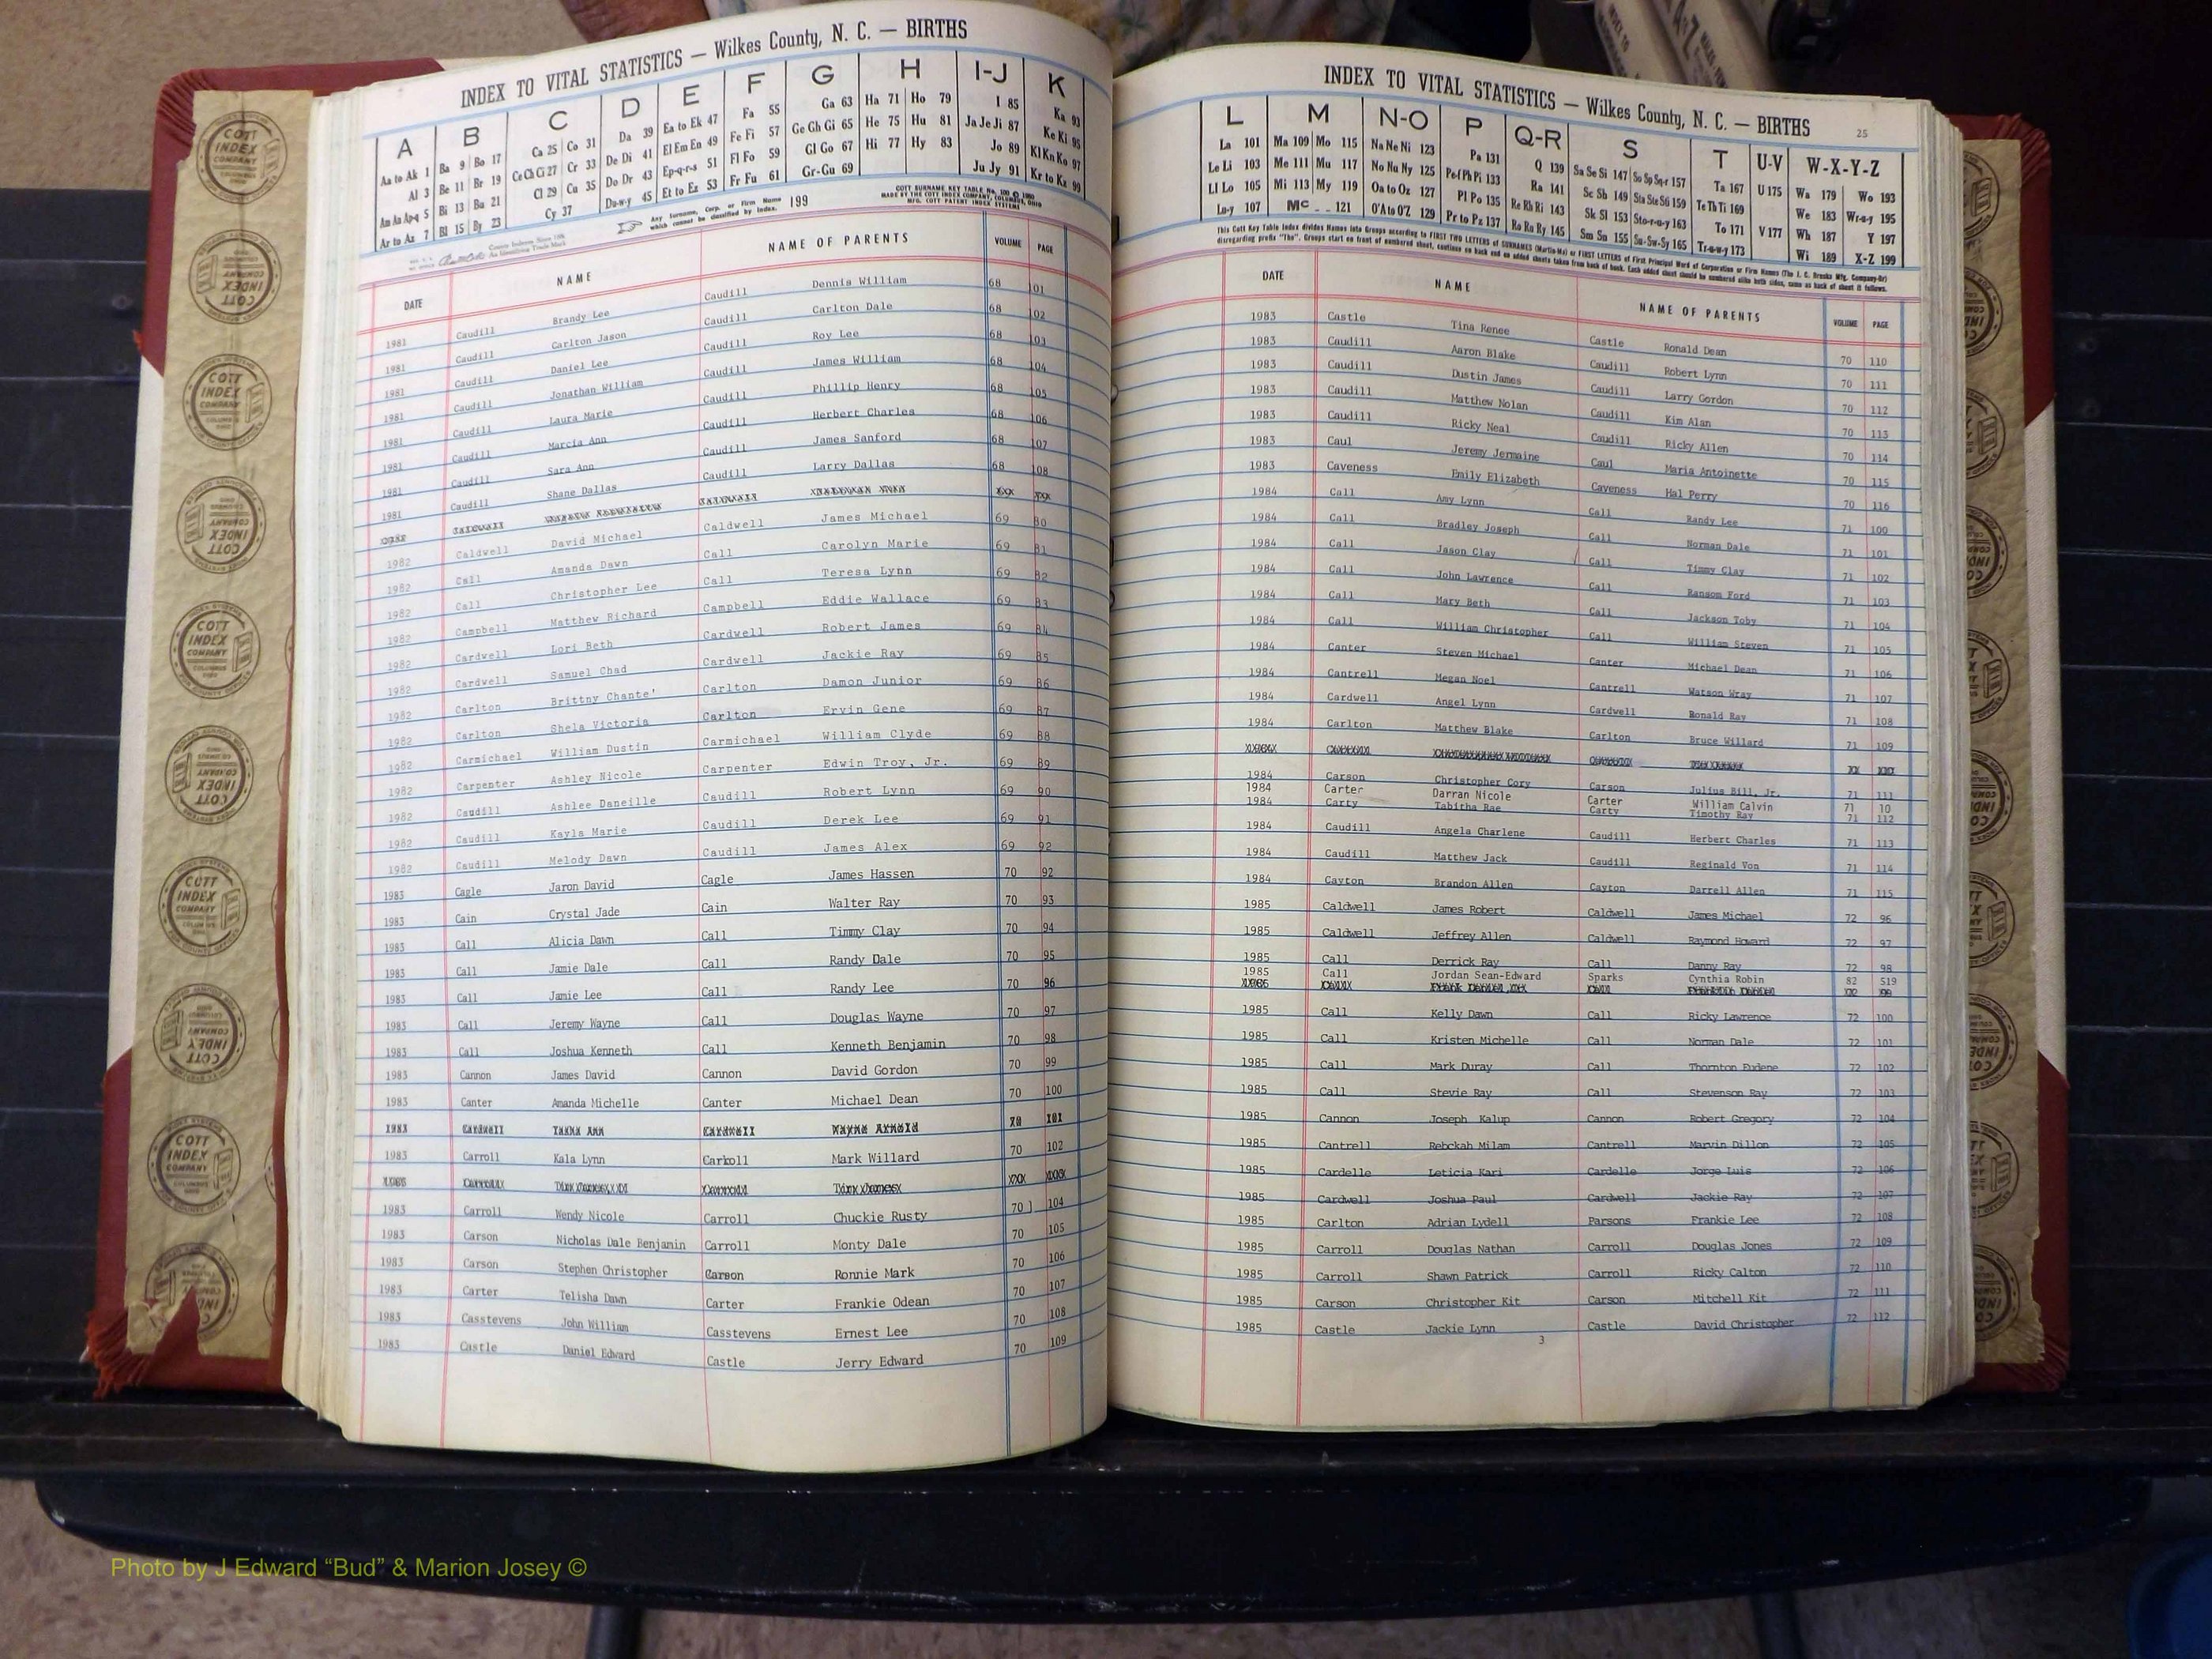 INDEX TO VITAL STATISTICS — Wilkes County, N. C. — BIRTHS
A B C D E F G H I-J K
Aa to Ak 1 Ba 9 Bo 17 Ca 25 Co 31 Da 39 Ea to Ek 47 Fa 55 Ga 63 Ha 71 Ho 79 I 85 Ka 93
Al 3 Be 11 Br 19 Ce Ch Ci 27 Cr 33 De Di 41 El Em En 49 Fe Fi 57 Ge Gh Gi 65 He 75 Hu 81 Ja Je Ji 87 Ke Ki 95
Am An Ap-q 5 Bi 13 Bu 21 Cl 29 Cu 35 Do Dr 43 Ep-q-r-s 51 Fl Fo 59 Gl Go 67 Hi 77 Hy 83 Jo 89 Kl Kn Ko 97
Ar to Az 7 Bl 15 By 23 Cy 37 Du-w-y 45 Et to Ez 53 Fr Fu 61 Gr-Gu 69 Ju Jy 91 Kr to Kz 99
Any Surname, Corp. or Firm Name which cannot be classified by Index. 199
COTT SURNAME KEY TABLE No. 100 © 1980
MADE BY THE COTT INDEX COMPANY, COLUMBUS, OHIO
MFG. COTT PATENT INDEX SYSTEMS
DATE NAME NAME OF PARENTS VOLUME PAGE
1981 Caudill Brandy Lee Caudill Dennis William 68 101
1981 Caudill Carlton Jason Caudill Carlton Dale 68 102
1981 Caudill Daniel Lee Caudill Roy Lee 68 103
1981 Caudill Jonathan William Caudill James William 68 104
Caudill Laura Marie Caudill Phillip Henry 68 105
1981 Caudill Marcia Ann Caudill Herbert Charles 68 106
1981 Caudill Sara Ann Caudill James Sanford 68 107
1981 Caudill Shane Dallas Caudill Larry Dallas 68 108
1982 Caldwell David Michael Caldwell James Michael 69 80
1982 Call Amanda Dawn Call Carolyn Marie 69 81
1982 Call Christopher Lee Call Teresa Lynn 69 82
1982 Campbell Matthew Richard Campbell Eddie Wallace 69 83
1982 Cardwell Lori Beth Cardwell Robert James 69 84
1982 Cardwell Samuel Chad Cardwell Jackie Ray 69 85
1982 Carlton Brittny Chante' Carlton Damon Junior 69 86
1982 Carlton Shela Victoria Carlton Ervin Gene 69 87
1982 Carmichael William Dustin Carmichael William Clyde 69 88
1982 Carpenter Ashley Nicole Carpenter Edwin Troy, Jr. 69 89
1982 Caudill Ashlee Daneille Caudill Robert Lynn 69 90
1982 Caudill Kayla Marie Caudill Derek Lee 69 91
1982 Caudill Melody Dawn Caudill James Alex 69 92
1983 Cagle Jaron David Cagle James Hassen 70 92
1983 Cain Crystal Jade Cain Walter Ray 70 93
1983 Call Alicia Dawn Call Timmy Clay 70 94
1983 Call Jamie Dale Call Randy Dale 70 95
1983 Call Jamie Lee Call Randy Lee 70 96
1983 Call Jeremy Wayne Call Douglas Wayne 70 97
1983 Call Joshua Kenneth Call Kenneth Benjamin 70 98
1983 Cannon James David Cannon David Gordon 70 99
1983 Canter Amanda Michelle Canter Michael Dean 70 100
1983 Cardwell Ann Cardwell Wayne Arnold
1983 Carroll Kala Lynn Carroll Mark Willard 70 102
1983 Carroll Wendy Nicole Carroll Chuckie Rusty 70 104
1983 Carson Nicholas Dale Benjamin Carroll Monty Dale 70 105
1983 Carson Stephen Christopher Carson Ronnie Mark 70 106
1983 Carter Telisha Dawn Carter Frankie Odean 70 107
1983 Casstevens John William Casstevens Ernest Lee 70 108
1983 Castle Daniel Edward Castle Jerry Edward 70 109
INDEX TO VITAL STATISTICS — Wilkes County, N. C. — BIRTHS 25
L M N-O P Q-R S T U-V W-X-Y-Z
La 101 Ma 109 Mo 115 Na Ne Ni 123 Pa 131 Q 139 Sa Se Si 147 So Sp Sq-r 157 Ta 167 U 175 Wa 179 Wo 193
Le Li 103 Me 111 Mu 117 No Nu Ny 125 Pe-f Ph Pi 133 Ra 141 Sc Sh 149 Sta Ste Sti 159 Te Th Ti 169 We 183 Wr-u-y 195
Ll Lo 105 Mi 113 My 119 Oa to Oz 127 Pl Po 135 Re Rh Ri 143 Sk Sl 153 Sto-r-u-y 163 To 171 V 177 Wh 187 Y 197
Lu-y 107 Mc 121 O'A to O'Z 129 Pr to Pz 137 Ro Ru Ry 145 Sm Sn 155 Su-Sw-Sy 165 Tr-u-w-y 173 Wi 189 X-Z 199
This Cott Key Table Index divides Names into Groups according to FIRST TWO LETTERS of SURNAMES (Martin-Ma) or FIRST LETTERS of First Principal Word of Corporation or Firm Names (The J. C. Brooks Mfg. Company-Br)
disregarding prefix "The". Groups start on front of numbered sheet, continue on back and on added sheets taken from back of book. Each added sheet should be numbered alike both sides, same as back of sheet it follows.
DATE NAME NAME OF PARENTS VOLUME PAGE
1983 Castle Tina Renee Castle Ronald Dean 70 110
1983 Caudill Aaron Blake Caudill Robert Lynn 70 111
1983 Caudill Dustin James Caudill Larry Gordon 70 112
1983 Caudill Matthew Nolan Caudill Kim Alan 70 113
1983 Caudill Ricky Neal Caudill Ricky Allen 70 114
1983 Caul Jeremy Jermaine Caul Maria Antoinette 70 115
1983 Caveness Emily Elizabeth Caveness Hal Perry 70 116
1984 Call Amy Lynn Call Randy Lee 71 100
1984 Call Bradley Joseph Call Norman Dale 71 101
1984 Call Jason Clay Call Timmy Clay 71 102
1984 Call John Lawrence Call Ransom Ford 71 103
1984 Call Mary Beth Call Jackson Toby 71 104
1984 Call William Christopher Call William Steven 71 105
1984 Canter Steven Michael Canter Michael Dean 71 106
1984 Cantrell Megan Noel Cantrell Watson Wray 71 107
1984 Cardwell Angel Lynn Cardwell Ronald Ray 71 108
1984 Carlton Matthew Blake Carlton Bruce Willard 71 109
1984 Carson Christopher Cory Carson Julius Bill, Jr. 71 111
1984 Carter Darran Nicole Carter William Calvin 71 10
1984 Carty Tabitha Rae Carty Timothy Ray 71 112
1984 Caudill Angela Charlene Caudill Herbert Charles 71 113
1984 Caudill Matthew Jack Caudill Reginald Von 71 114
1984 Cayton Brandon Allen Cayton Darrell Allen 71 115
1985 Caldwell James Robert Caldwell James Michael 72 96
1985 Caldwell Jeffrey Allen Caldwell Raymond Howard 72 97
1985 Call Derrick Ray Call Danny Ray 72 98
1985 Call Jordan Sean-Edward Sparks Cynthia Robin 82 519
1985 Call Kelly Dawn Call Ricky Lawrence 72 100
1985 Call Kristen Michelle Call Norman Dale 72 101
1985 Call Mark Duray Call Thornton Eudene 72 102
1985 Call Stevie Ray Call Stevenson Ray 72 103
1985 Cannon Joseph Kalup Cannon Robert Gregory 72 104
1985 Cantrell Rebckah Milam Cantrell Marvin Dillon 72 105
1985 Cardelle Leticia Kari Cardelle Jorge Luis 72 106
1985 Cardwell Joshua Paul Cardwell Jackie Ray 72 107
1985 Carlton Adrian Lydell Parsons Frankie Lee 72 108
1985 Carroll Douglas Nathan Carroll Douglas Jones 72 109
1985 Carroll Shawn Patrick Carroll Ricky Calton 72 110
1985 Carson Christopher Kit Carson Mitchell Kit 72 111
1985 Castle Jackie Lynn Castle David Christopher 72 112
3
COTT INDEX COMPANY
Photo by J Edward “Bud” & Marion Josey ©